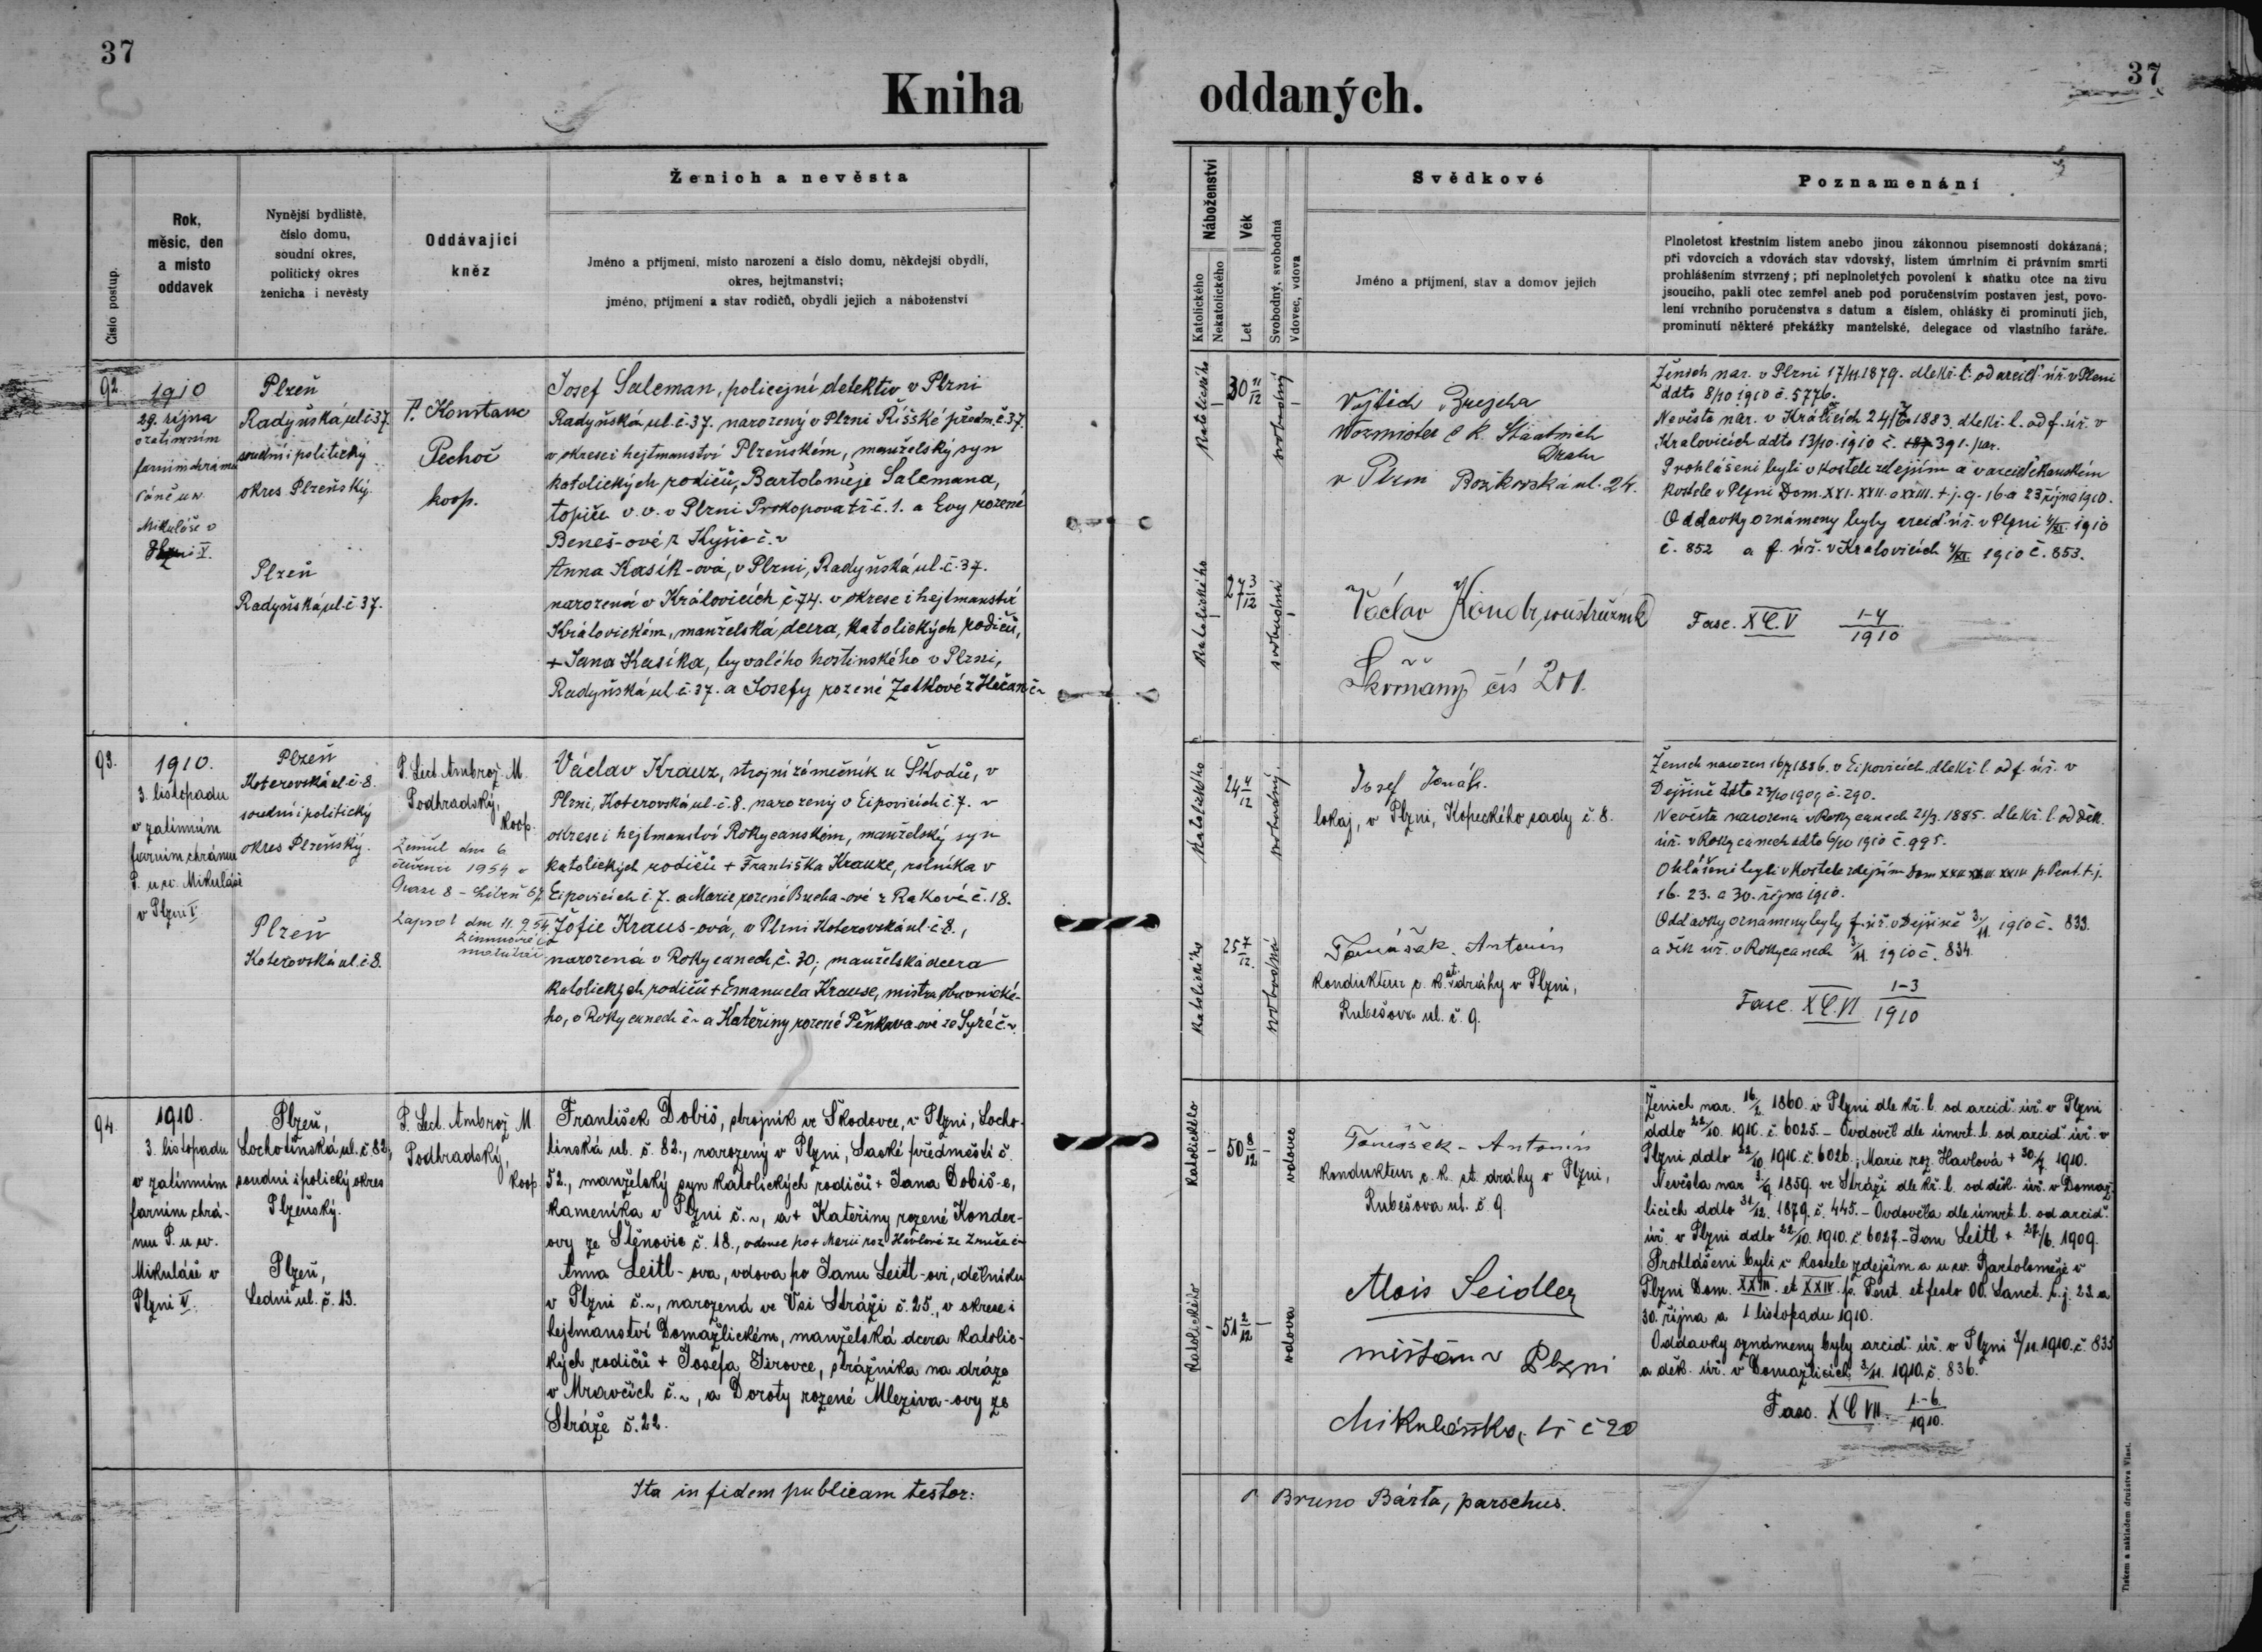 37
37
Kniha oddaných.
Číslo postup.
Rok,
měsíc, den
a místo
oddavek
Nynější bydliště,
číslo domu,
soudní okres,
politický okres
ženicha i nevěsty
Oddávající
kněz
Ženich a nevěsta
Jméno a příjmení, místo narození a číslo domu, někdejší obydlí,
okres, hejtmanství;
jméno, příjmení a stav rodičů, obydlí jejich a náboženství
Náboženství
Katolického
Nekatolického
Věk
Let
Svobodný, svobodná
Vdovec, vdova
Svědkové
Jméno a příjmení, stav a domov jejich
Poznamenání
Plnoletost křestním listem anebo jinou zákonnou písemností dokázaná;
při vdovcích a vdovách stav vdovský, listem úmrtním či právním smrti
prohlášením stvrzený; při neplnoletých povolení k sňatku otce na živu
jsoucího, pakli otec zemřel aneb pod poručenstvím postaven jest, povo-
lení vrchního poručenstva s datum a číslem, ohlášky či prominutí jich,
prominutí některé překážky manželské, delegace od vlastního faráře.
92.
1910
29. října
v zatimním
farním chrámu
Páně u sv.
Mikuláše v
Plzni V.
Plzeň
Radyňská ul. č 37.
soudní i politický
okres Plzeňský.
Plzeň
Radyňská ul. č 37.
P. Konstanc
Pechoč
koop.
Josef Saleman, policejní detektiv v Plzni
Radyňská ul. č. 37. narozený v Plzni Říšské předm. č 37.
v okrese i hejtmanství Plzeňském, manželský syn
katolických rodičů, Bartoloměje Salemana,
topiče v. v. v Plzni Prokopova tř. č. 1. a Evy rozené
Beneš-ové z Kyšic č. ~
Anna Kasík-ová, v Plzni, Radyňská ul. č. 37.
narozená v Královicích č. 74. v okrese i hejtmanství
Královickém, manželská dcera, katolických rodičů,
+ Jana Kasíka, byvalého hostinského v Plzni,
Radyňská ul. č. 37. a Josefy rozené Zelkové z Hlečan č ~
Katolického
30 11/12
svobodný
Katolického
27 3/12
svobodná
Vojtěch Brejcha
v Plzni Božkovská ul. 24.
Václav
Škvrňany čís 201.
Ženich nar. v Plzni 17/11 1879. dle kř. l. od arcid. úř. v Plzni
ddto 8/10 1910 č. 5776.
Nevěsta nar. v Královicích 24/7 1883. dle kř. l. od f. úř. v
Kralovicích ddto 13/10 1910 č. 391. / nar.
Prohlášeni byli v kostele zdejším a v arciděkanském
kostele v Plzni Dom. XXI. XXII. a XXIII. t. j. 9. 16 a 23 října 1910.
Oddavky oznámeny byly arcid. úř. v Plzni 4/XI. 1910
č. 852 a f. úř. v Kralovicích 4/XI. 1910 č. 853.
Fasc. XC.V 1-4/1910
93.
1910.
3. listopadu
v zatímním
farním chrámu
P. u sv. Mikuláše
v Plzni V.
Plzeň
Koterovská ul. č. 8.
soudní i politický
okres Plzeňský.
Plzeň
Koterovská ul. č 8.
P. Lect. Ambrož M.
Podhradský,
koop.
Zemřel dne 6.
července 1954 v
Praze 8 - Libeň
Zapsal dne 11. 9. 54
Václav Krauz, strojní zámečník u Škodů, v
Plzni, Koterovská ul. č. 8. narozený v Eipovicích č. 7. v
okrese i hejtmanství Rokycanském, manželský syn
katolických rodičů + Františka Krauze, rolníka v
Eipovicích č. 7. a Marie rozené Bucha-ové z Rakové č. 18.
Žofie Kraus-ová, v Plzni Koterovská ul. č 8.,
narozená v Rokycanech č. 30., manželská dcera
katolických rodičů + Emanuela Krause, mistra obuvnické-
ho, v Rokycanech č ~ a Kateřiny rozené Pěnkava-ové ze Syré č ~.
Katolického
24 4/12
svobodný
Katolického
25 7/12
svobodná
Josef Jonáš.
lokaj, v Plzni, Kopeckého sady č. 8.
Tomášek Antonín
konduktor c. k. st. dráhy v Plzni,
Rubešova ul. č. 9.
Ženich narozen 16/7 1886. v Eipovicích dle kř. l. od f. úř. v
Dejšině ddto 23/10 1909 č. 290.
Nevěsta narozena v Rokycanech 21/3. 1885. dle kř. l. od děk.
úř. v Rokycanech ddto 6/10 1910 č. 995.
Ohlášeni byli v kostele zdejším Dom XXII XXIII. XXIV p. Pent. t. j.
16. 23. a 30. října 1910.
Oddavky oznámeny byly f. úř. v Dejšině 3/11. 1910 č. 833.
a děk úř. v Rokycanech 3/11. 1910 č. 834.
Fasc. XC.VI 1-3/1910
94
1910.
3. listopadu
v zatímním
farním chrá-
mu P. u sv.
Mikuláše v
Plzni V.
Plzeň,
Lochotínská ul. č. 82,
soudní i polický okres
Plzeňský.
Plzeň,
Lední ul. č. 13.
P. Lect. Ambrož M.
Podhradský,
koop.
František Dobiš, strojník ve Škodovce, v Plzni, Locho-
tínská ul. č. 82., narozený v Plzni, Saské předměstí č.
52., manželský syn katolických rodičů + Jana Dobiš-e,
kameníka v Plzni č. ~, a + Kateřiny rozené Konder-
ovy ze Štěnovic č. 18., vdovec po + Marii roz. Havlové ze Zruče č ~
Anna Leitl-ova, vdova po Janu Leitl-ovi, dělníku
v Plzni č. ~, narozená ve Vsi Stráži č. 25., v okrese i
hejtmanství Domažlickém, manželská dcera katolic-
kých rodičů + Josefa Jírovce, strážníka na dráze
v Mravčích č. ~, a Doroty rozené Mleziva-ovy ze
Stráže č. 22.
Katolického
50 8/12
vdovec
Katolického
51 2/12
vdova
Tomášek - Antonín
konduktor c. k. st. dráhy v Plzni,
Rubešova ul. č. 9.
Alois Seidler
měšťan v Plzni
Mikulášská tř č 20
Ženich nar. 16/2 1860. v Plzni dle kř. l. od arcid. úř. v Plzni
ddto 22/10. 1910. č. 6025. - Ovdověl dle úmrt. l. od arcid. úř. v
Plzni ddto 22/10. 1910. č. 6026.; Marie roz. Havlová + 30/7. 1910.
Nevěsta nar. 3/9. 1859. ve Stráži dle kř. l. od děk. úř. v Domaž-
licích ddto 31/12. 1879. č. 445. - Ovdověla dle úmrt. l. od arcid.
úř. v Plzni ddto 22/10. 1910. č 6027. - Jan Leitl + 27/6. 1909.
Prohlášeni byli v kostele zdejším a u sv. Bartoloměje v
Plzni Dom. XXIII. et XXIV. p. Pent. et festo OO. Sanct. t. j. 23. a
30. října a 1 listopadu 1910.
Oddavky oznámeny byly arcid. úř. v Plzni 3/11. 1910. č. 835
a děk. úř. v Domažlicích 3/11. 1910. č. 836.
Fasc. XC VII. 1.-6./1910.
Ita in fidem publicam testor:
P. Bruno Bárta, parochus.
Tiskem a nákladem družstva Vlast.